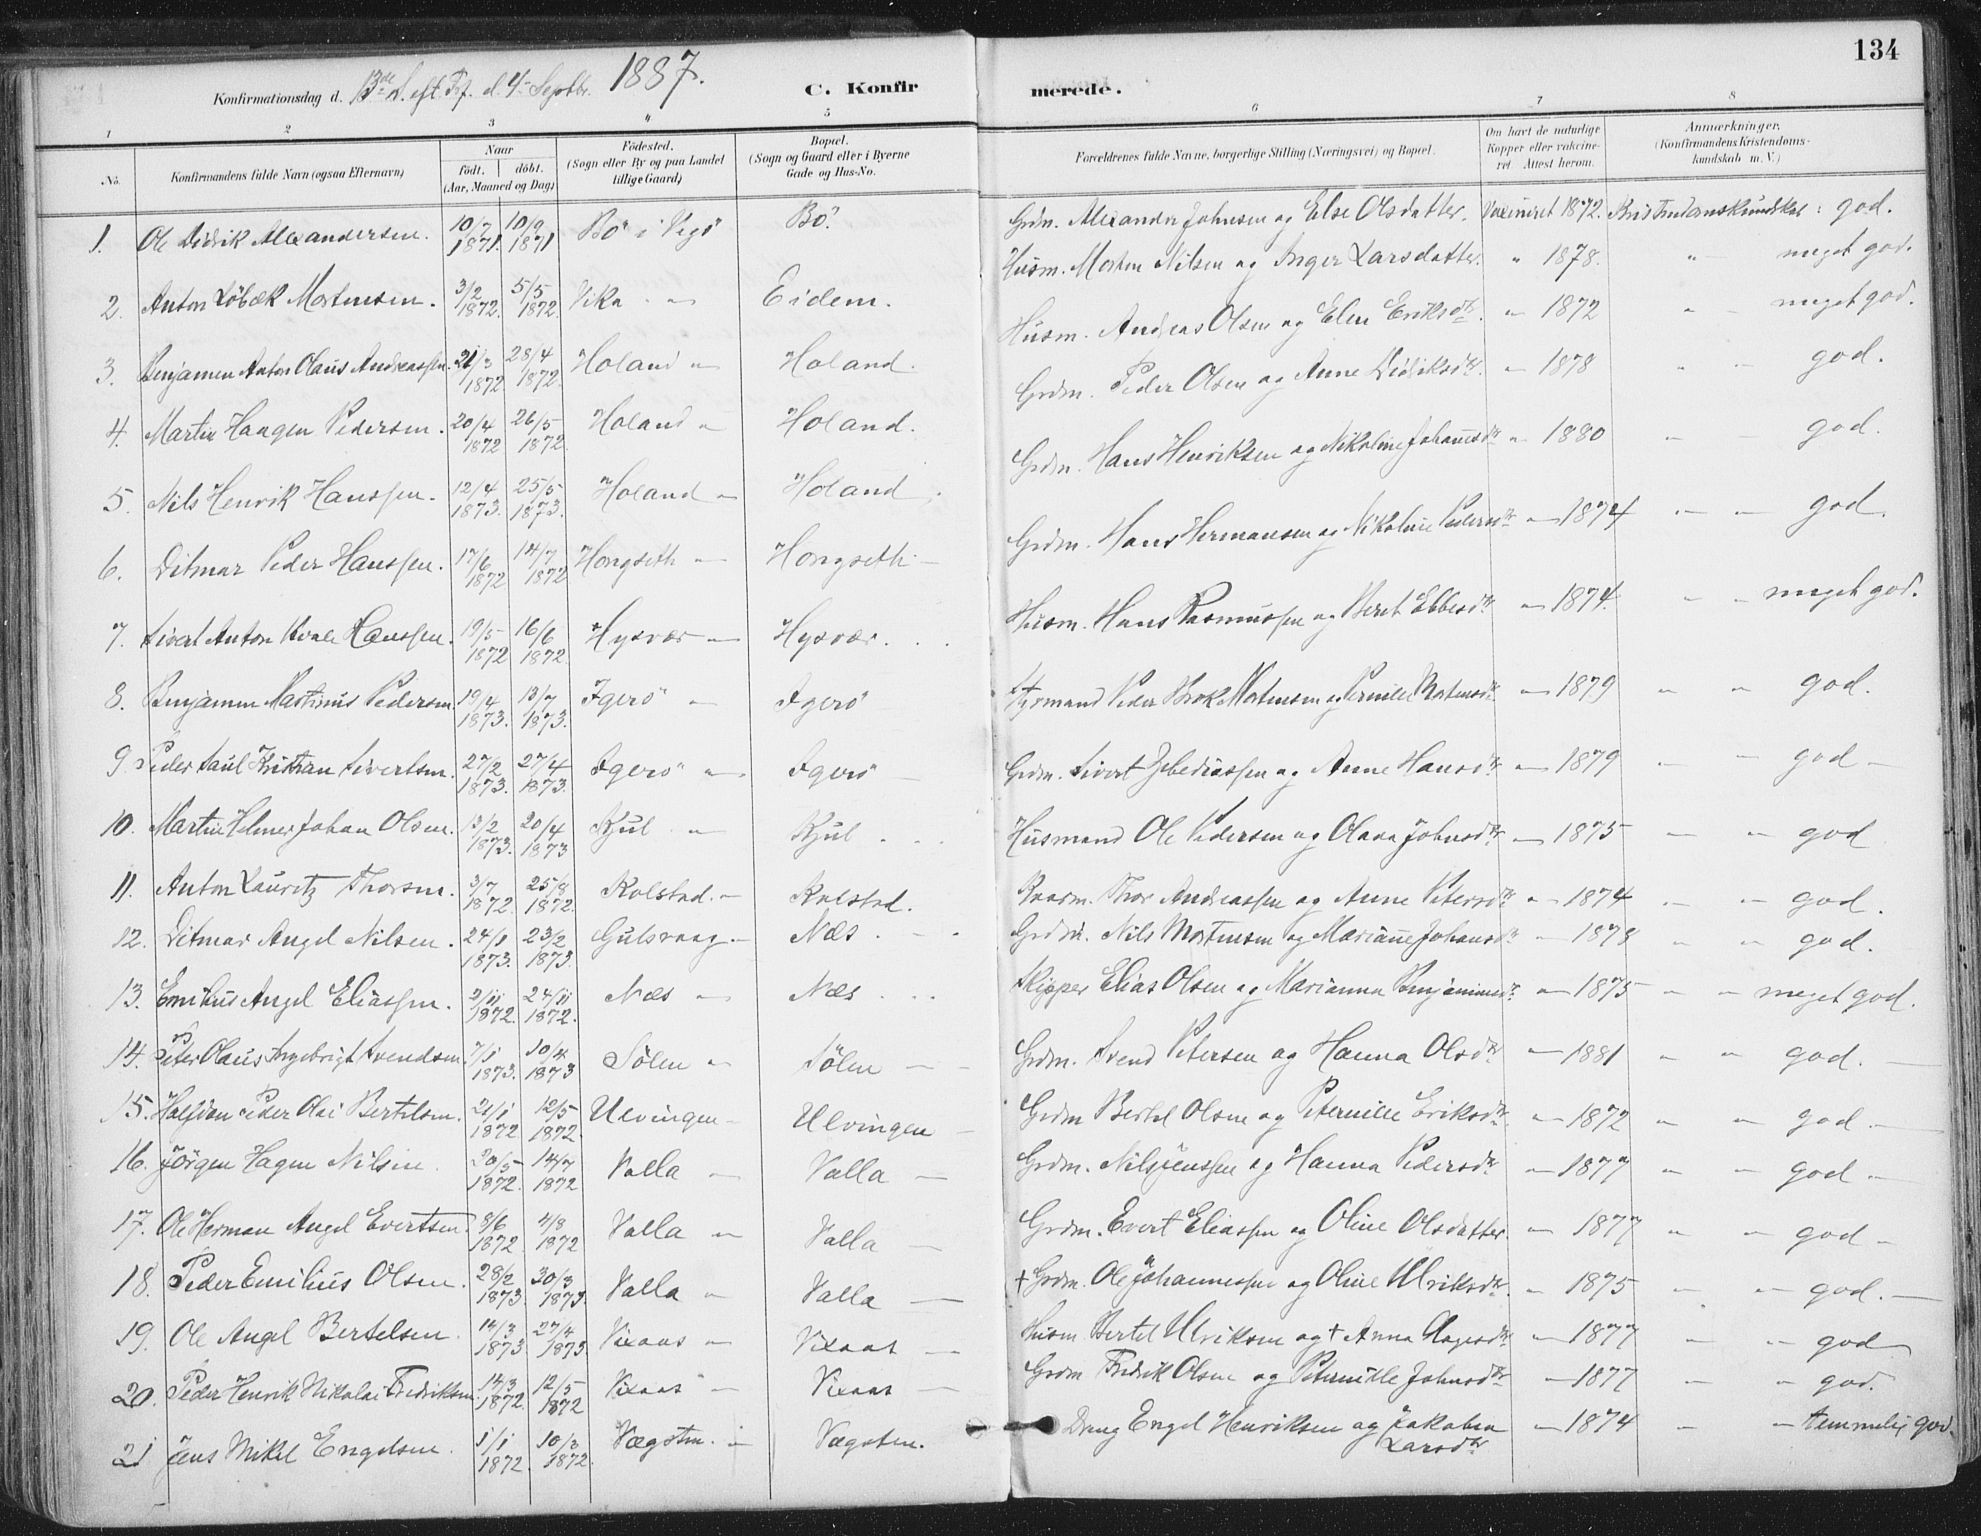 134
Konfirmationsdag d. 13de S. eft. Tref. d. 4de Septbr. 1887.
C. Konfirmerede.
1 2 3 4 5 6 7 8
No. Konfirmandens fulde Navn (ogsaa Efternavn) Naar født. døbt. (Aar, Maaned og Dag) Fødested. (Sogn eller By og paa Landet tillige Gaard) Bopæl. (Sogn og Gaard eller i Byerne Gade og Hus-No. Forældrenes fulde Navne, borgerlige Stilling (Næringsvei) og Bopæl. Om havt de naturlige Kopper eller vaccineret Attest herom. Anmærkninger. (Konfirmandens Kristendomskundskab m. V.)
1. Ole Didrik Alexandersen. 10/7 1871. 10/9 1871 Bö i Vegö Bö. Grdm. Alexander Johnsen og Else Olsdatter. Vaccineret 1872. Kristendomskundskab: god.
2. Anton Löbæk Mortensen. 3/2 1872. 5/5 1872. Vika " Eidem. Husm. Morten Nilsen og Inger Larsdatter. " 1878. " meget god.
3. Benjamen Anton Olaus Andreassen. 21/3 1872 28/4 1872. Holand " Holand. Husm. Andreas Olsen og Elen Eriksdtr. " 1872 " meget god.
4. Martin Haagen Pedersen. 20/4 1872 26/5 1872. Holand " Holand. Grdm. Peder Olsen og Anne Didriksdtr. " 1878 " god.
5. Nils Henrik Hanssen. 12/4 1873. 25/5 1873. Holand " Holand. Grdm. Hans Henriksen og Nikoline Johansdtr " 1880 " god.
6. Ditmar Peder Hanssen. 17/6 1872 14/7 1872 Hongseth " Hongseth Grdm. Hans Hermansen og Nikoline Pedersdtr " 1874 " " god.
7. Sivert Anton Kvale Hanssen. 19/5 1872 16/6 1872. Hysvær " Hysvær. Husm. Hans Rasmussen og Beret Ebbesdtr " 1874. " " meget god.
8. Benjamen Martinus Pedersen 19/4 1873. 13/7 1873. Igerö " Igerö Fyrmand Peder Brok Mortensen og Pernille Mortensdtr " 1879 " " god.
9. Peder Paul Kristian Sivertsen. 27/2 1873. 27/4 1873. Igerö " Igerö Grdm. Sivert Zebediassen og Anne Hansdtr " 1879 " god
10. Martin Helmer Johan Olsen. 13/2 1873. 20/4 1873 Kjul " Kjul Husmand Ole Pedersen og Olava Johnsdtr " 1875 " " god
11. Anton Lauritz Thorsen. 3/7 1872. 25/8 1872. Kolstad. " Kolstad. Thor Andreassen og Anne Petersdtr " 1874 " " god.
12. Ditmar Angel Nilsen. 24/1 1873. 23/2 1873. Gulsvaag " Næs Grdm. Nils Mortensen og Mariane Johansdtr " 1878 " " god.
13. Emilius Angel Eliassen. 2/11 1872. 24/11 1872. Næs " Næs Skipper Elias Olsen og Marianna Benjaminsdtr " 1875 " " meget god.
14. Peter Olaus Ingebrigt Svendsen 7/1 1873. 10/4 1873 Sölen " Sölen Grdm. Svend Petersen og Hanna Olsdtr " 1881 " " god.
15. Halfdan Peder Olai Bertelsen. 21/1 1872 12/5 1872. Ulvingen " Ulvingen Grdm Bertel Olsen og Peternille Eriksdtr. " 1872 " " god.
16. Jörgen Hagen Nilsen. 20/5 1872. 14/7 1872 Valla " Valla Grdm. Nils Jenssen og Hanna Pedersdtr " 1877 " " god
17. Ole Herman Angel Evertsen. 8/6 1872. 4/8 1872 Valla " Valla Grdm. Evert Eliassen og Oline Olsdatter. " 1877 " " god
18. Peder Emilius Olsen. 28/2 1873. 30/3 1873. Valla " Valla † Grdm. Ole Johannessen og Oline Ulriksdtr. " 1875 " god.
19. Ole Angel Bertelsen. 14/3 1873 27/4 1873. Vixaas " Vixaas Husm Bertel Ulriksen og † Anna Aagesdtr " 1877 " " god
20. Peder Henrik Nikolai Fredriksen 14/3 1872. 12/5 1872 Vixaas " Vixaas Grdm Fredrik Olsen og Peternille Johnsdtr " 1877 " " god.
21 Jens Mikal Engelsen. 1/1 1872. 10/3 1872. Vægsten. " Vægsten. Dreng Engel Henriksen og Jakobea Larsdtr " 1874 " " temmelig god.